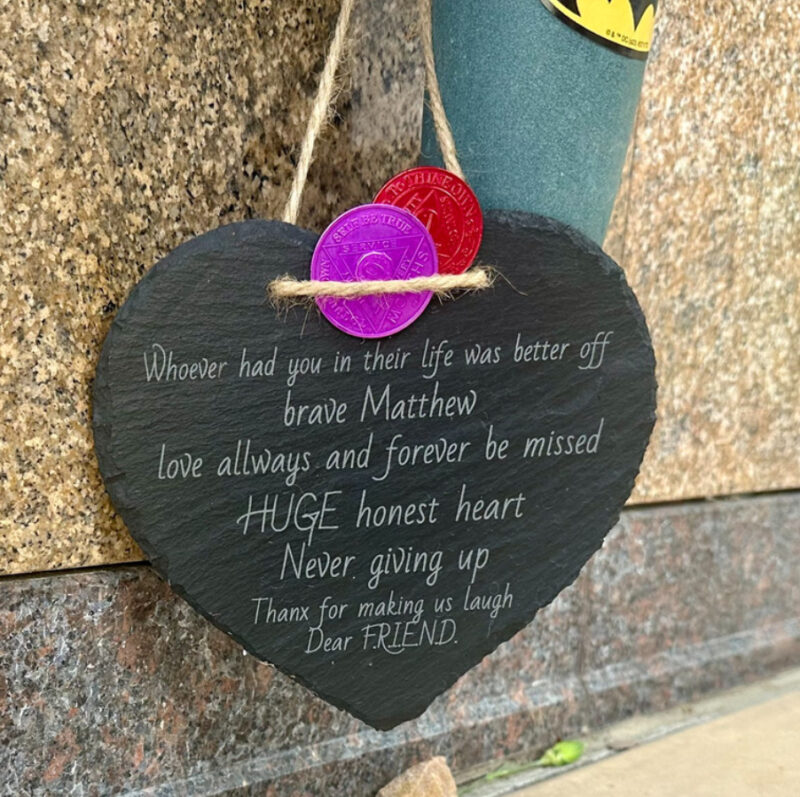 TO THINE OWN
SELF BE TRUE
SERVICE
Whoever had you in their life was better off
brave Matthew
love allways and forever be missed
HUGE honest heart
Never giving up
Thanx for making us laugh
Dear F.R.I.E.N.D.